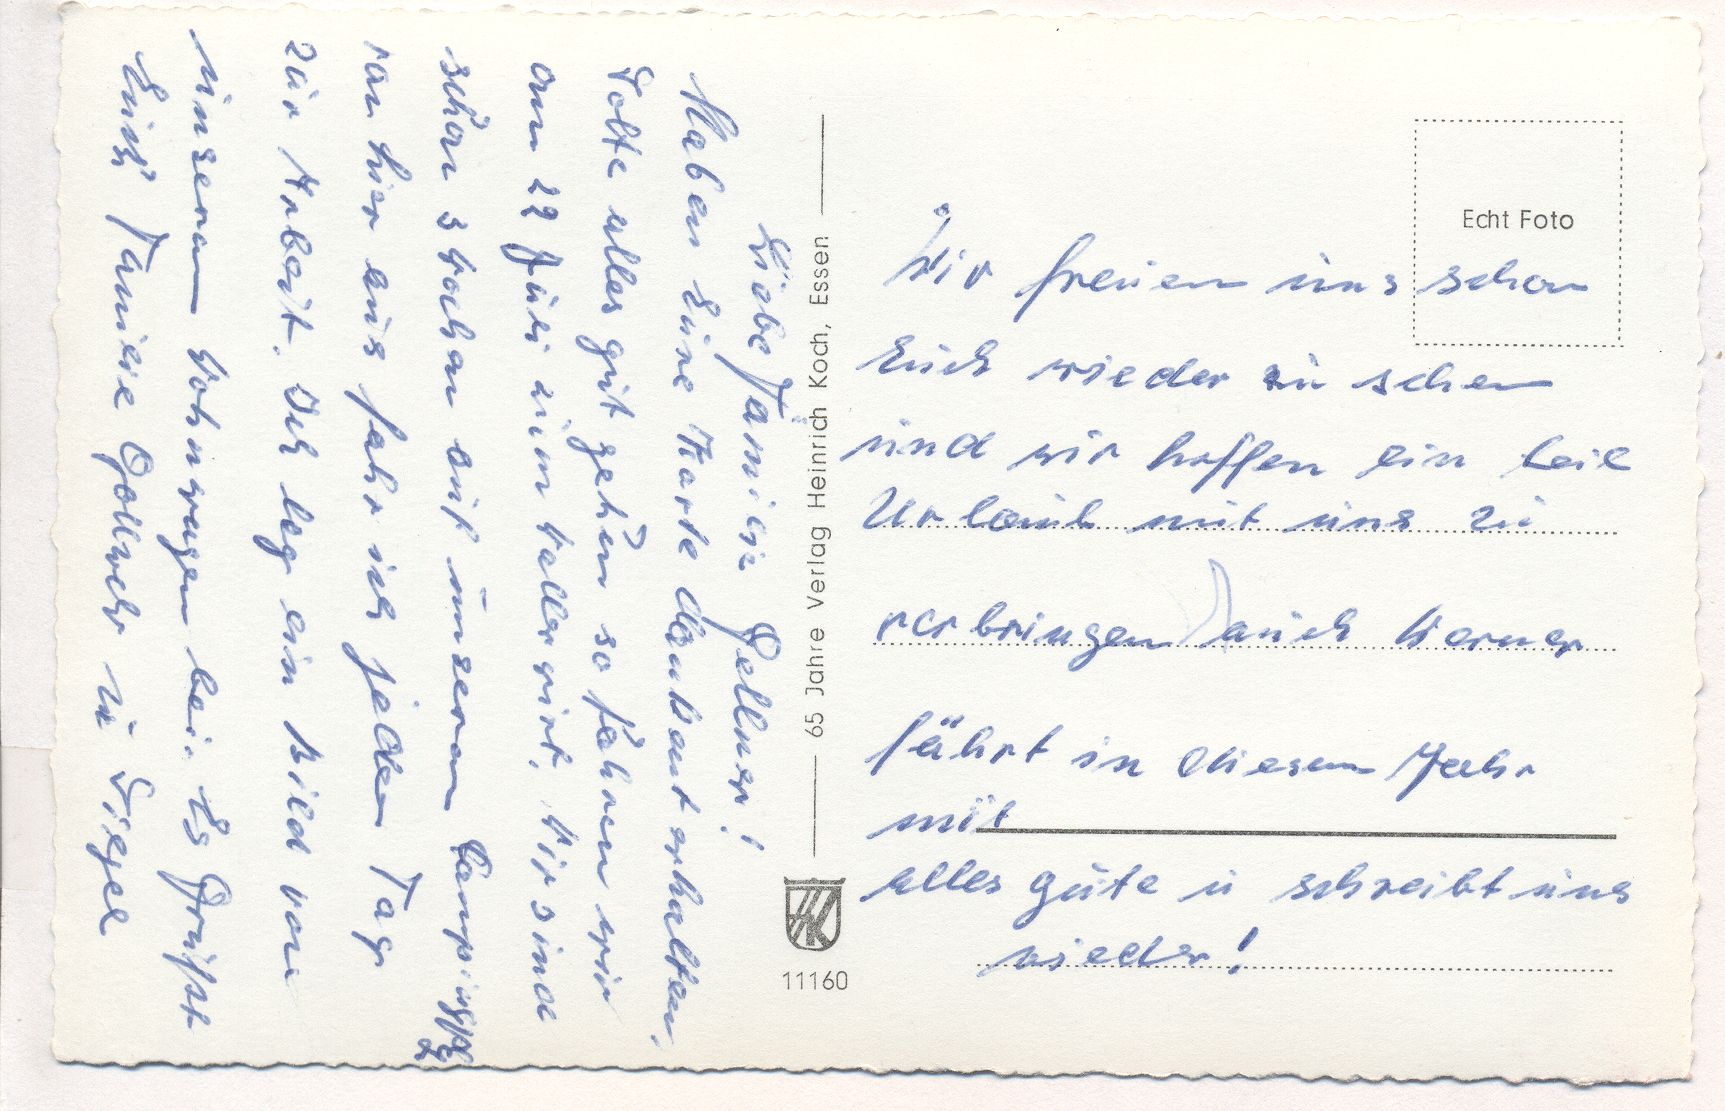 Liebe Familie Gellner!
Haben Eure Karte dankent erhalten,
Solte alles gut gehen so fahren wir
am 22 Juli zum Kellerwirt, Wir sind
schon 3 Wochen auf unseren Campingpl
von hier aus fahr ich jeden Tag
zur Arbeit. Ich leg ein Bild von
unseren Wohnwagen bei. Es Grüßt
Euch Familie u
65 Jahre Verlag Heinrich Koch, Essen
HK
11160
Echt Foto
Wir freuen uns schon
Euch wieder zu sehen
und wir hoffen ein teil
Urlaub mit uns zu
verbringen auch Werner
fährt in diesem Jahr
mit
alles gute u schreibt uns
wieder!